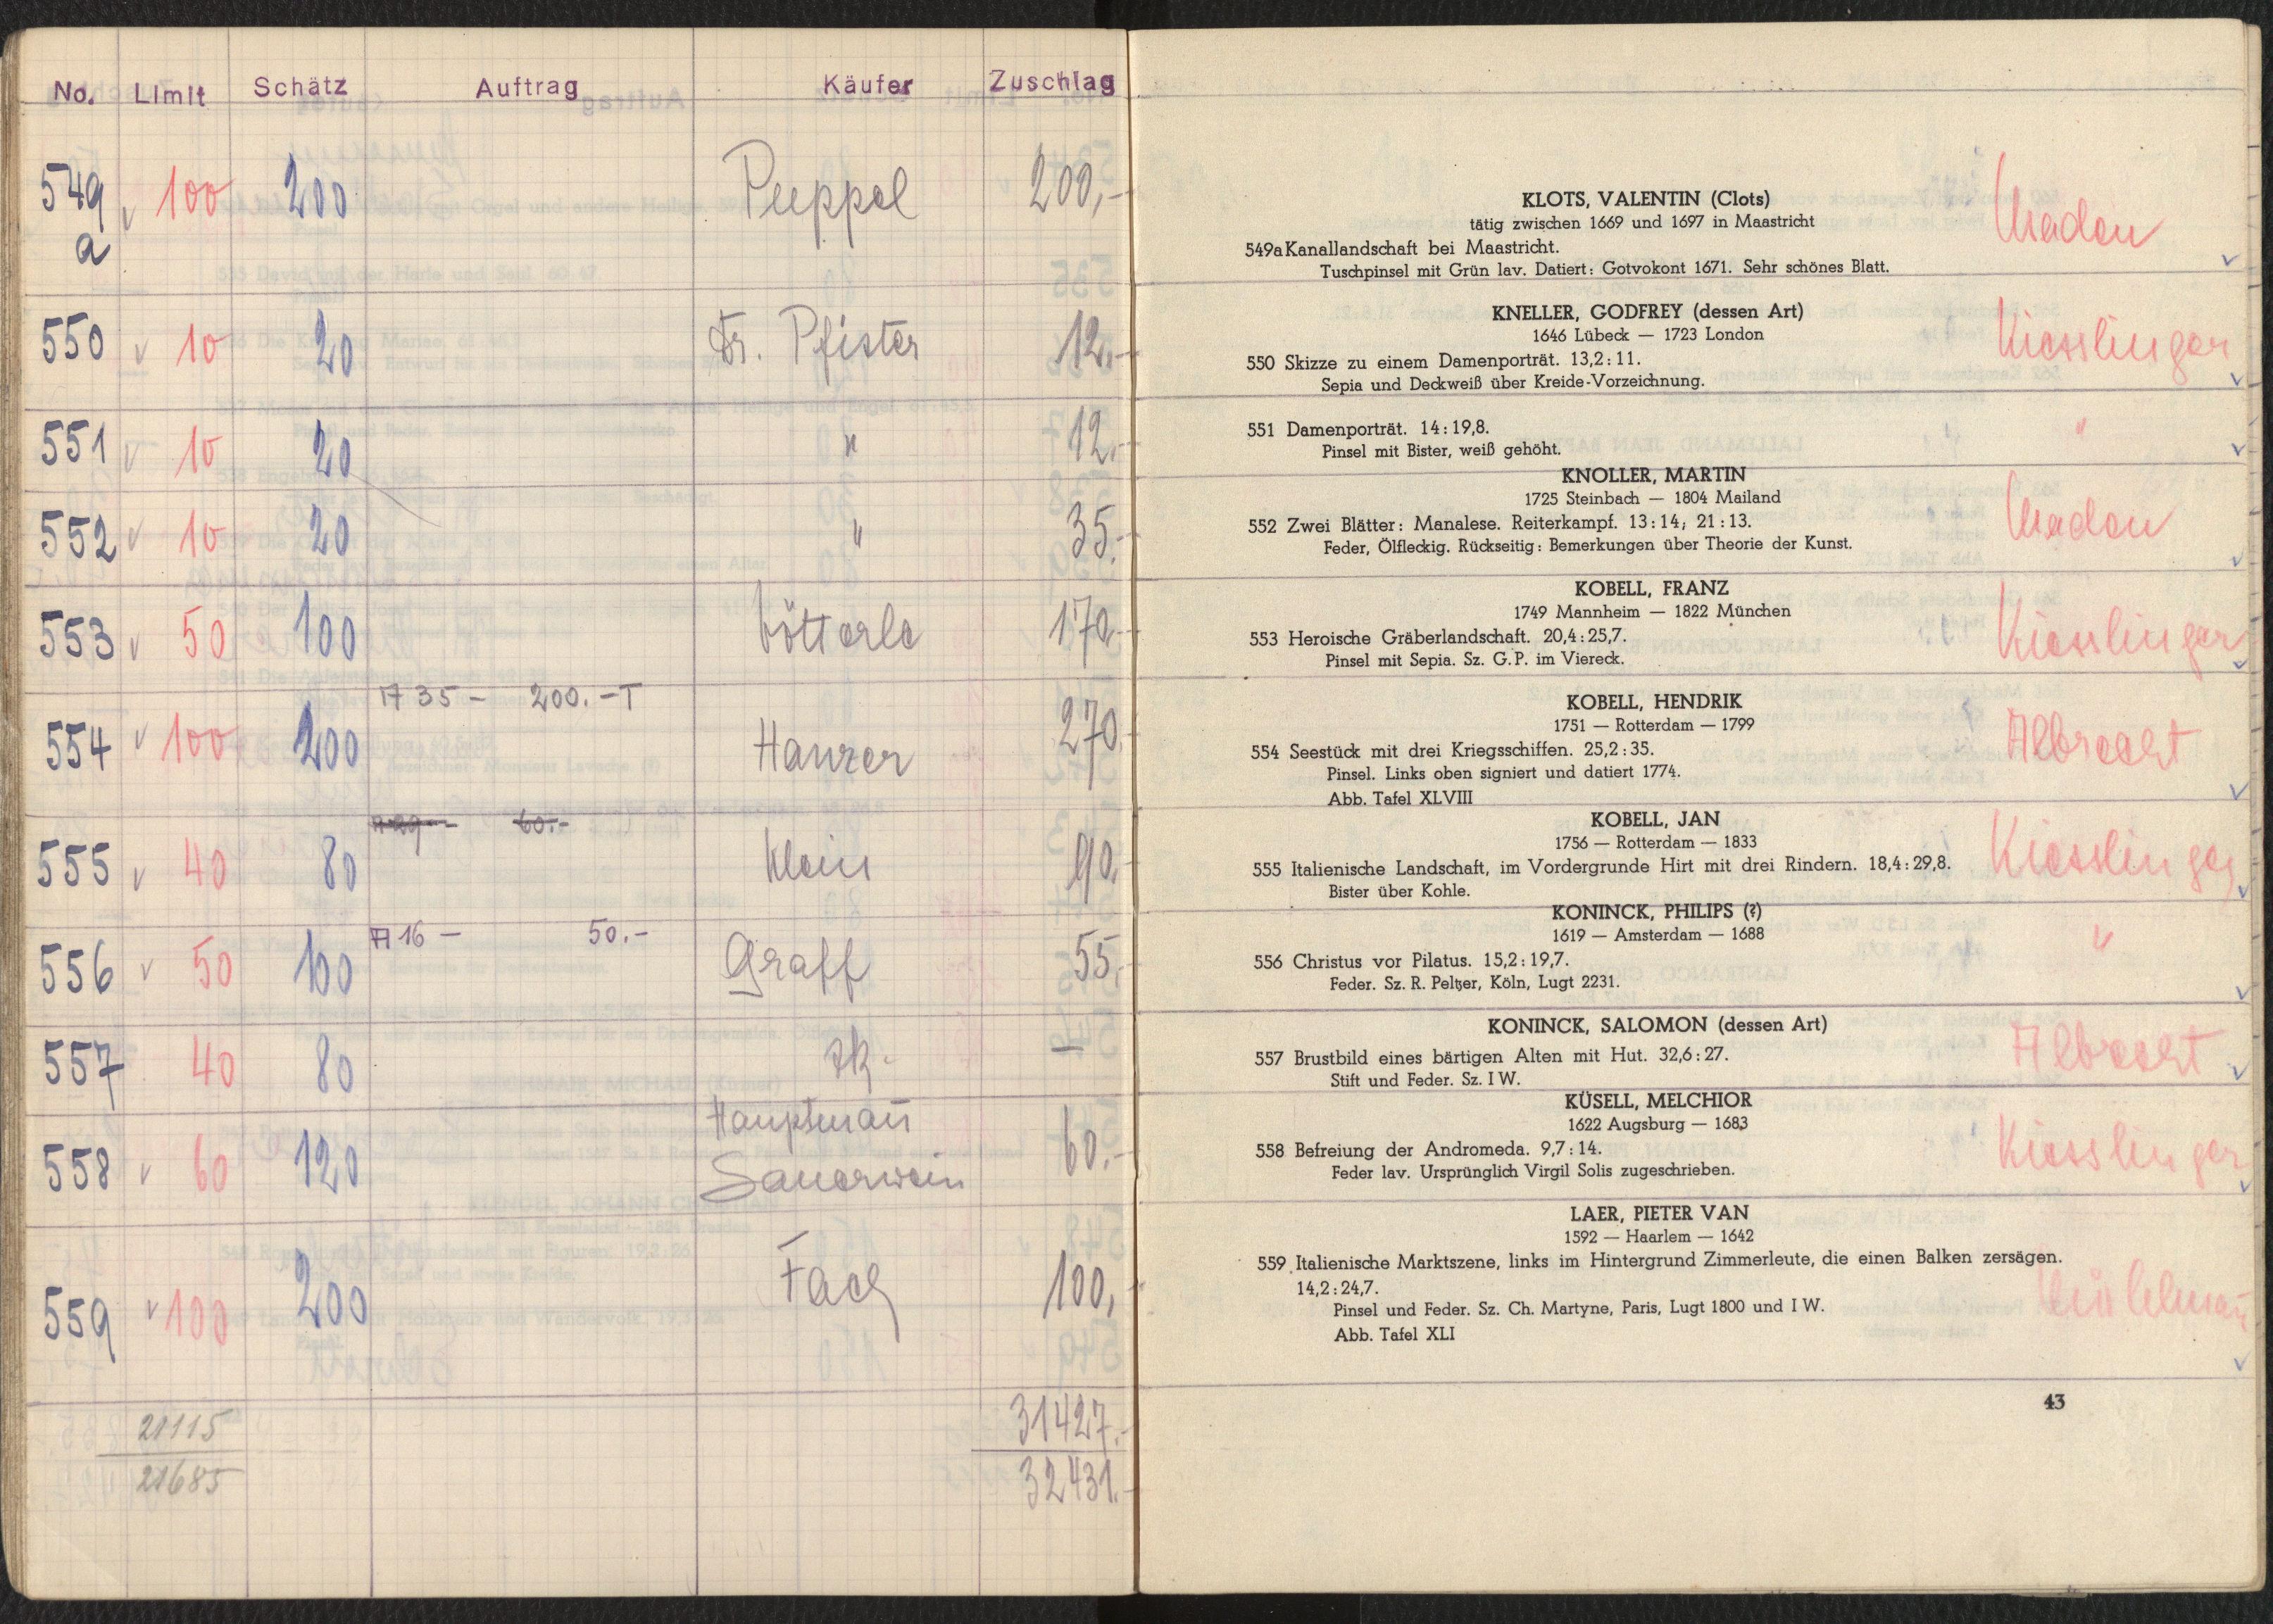 No. Limit Schätz Auftrag Käufer Zuschlag
549a 100 200 200,-
550 10 20 Dr. Pfister 12.-
551 10 20 " 12.-
552 10 20 " 35.-
553 50 100 170.-
A 35 - 200.-T
554 100 200 Hanzer 270.
A 29 - 60.-
555 40 80 Klein 90.-
A 16 - 50.-
556 50 100 Graff 55.-
557 40 80 Zk. -
558 60 120 Hauptmann Sauerwein 60.-
559 100 200 Fach 100,-
21115 31427.-
21685 32431.-
KLOTS, VALENTIN (Clots)
tätig zwischen 1669 und 1697 in Maastricht
549a Kanallandschaft bei Maastricht.
Tuschpinsel mit Grün lav. Datiert: Gotvokont 1671. Sehr schönes Blatt.
KNELLER, GODFREY (dessen Art)
1646 Lübeck — 1723 London
Kiesslinger
550 Skizze zu einem Damenporträt. 13,2:11.
Sepia und Deckweiß über Kreide-Vorzeichnung.
551 Damenporträt. 14:19,8. "
Pinsel mit Bister, weiß gehöht.
KNOLLER, MARTIN
1725 Steinbach — 1804 Mailand
552 Zwei Blätter: Manalese. Reiterkampf. 13:14; 21:13.
Feder, Ölfleckig. Rückseitig: Bemerkungen über Theorie der Kunst.
KOBELL, FRANZ
1749 Mannheim — 1822 München
Kiesslinger
553 Heroische Gräberlandschaft. 20,4:25,7.
Pinsel mit Sepia. Sz. G.P. im Viereck.
KOBELL, HENDRIK
1751 — Rotterdam — 1799
Albrecht
554 Seestück mit drei Kriegsschiffen. 25,2:35.
Pinsel. Links oben signiert und datiert 1774.
Abb. Tafel XLVIII
KOBELL, JAN
1756 — Rotterdam — 1833
Kiesslinger
555 Italienische Landschaft, im Vordergrunde Hirt mit drei Rindern. 18,4:29,8.
Bister über Kohle.
KONINCK, PHILIPS (?)
1619 — Amsterdam — 1688
"
556 Christus vor Pilatus. 15,2:19,7.
Feder. Sz. R. Peltzer, Köln, Lugt 2231.
KONINCK, SALOMON (dessen Art)
557 Brustbild eines bärtigen Alten mit Hut. 32,6:27. Albrecht
Stift und Feder. Sz. I W.
KÜSELL, MELCHIOR
1622 Augsburg — 1683
558 Befreiung der Andromeda. 9,7:14. Kiesslinger
Feder lav. Ursprünglich Virgil Solis zugeschrieben.
LAER, PIETER VAN
1592 — Haarlem — 1642
559 Italienische Marktszene, links im Hintergrund Zimmerleute, die einen Balken zersägen.
14,2:24,7.
Pinsel und Feder. Sz. Ch. Martyne, Paris, Lugt 1800 und I W.
Abb. Tafel XLI
43